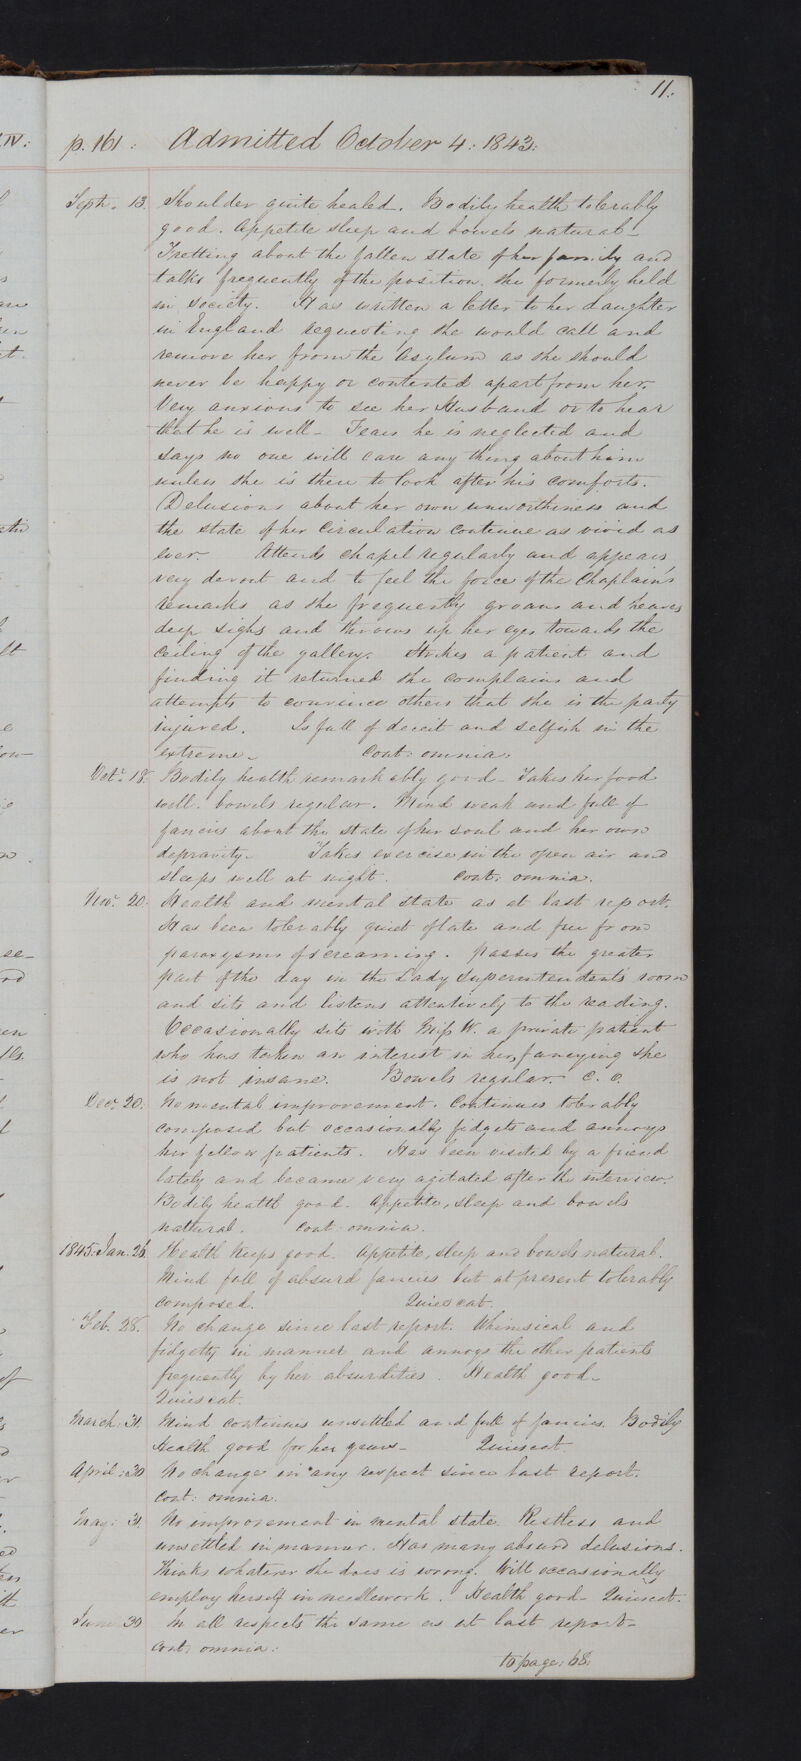 11.
p. 161: Admitted October 4: 1843:
Septr. 13. Shoulder quite healed. Bodily health tolerably
good. Appetite sleep and bowels natural–
Fretting about the fallen state of her family and
talks frequently of the position she formerly held
in society. Has written a letter to her daughter
in England requesting she would call and
remove her from the Asylum as she should
never be happy or contented apart from her.
Very anxious to see her Husband or to hear
that he is well– Fears he is neglected and
says no one will care any thing about him
unless she is there to look after his comforts.
Delusions about her own unworthiness and
the state of her circulation continue as vivid as
ever– Attends chapel regularly and appears
very devout and to feel the force of the Chaplain's
remarks as she frequently groans and heaves
deep sighs and throws up her eyes towards the
ceiling of the gallery. Strikes a patient and
finding it returned she complains and
attempts to convince others that she is the party
injured. Is full of deceit and selfish in the
extreme– Cont: omnia:
Octr. 18. Bodily health remarkably good– Takes her food
well. bowels regular. Mind weak and full of
fancies about the state of her soul and her own
depravity– Takes exercise in the open air and
sleeps well at night. Cont: omnia.
Novr. 20: Health and mental state as at last report.
Has been tolerably quiet of late and free from
paroxysms of screaming. Passes the greater
part of the day in the Lady Superintendents room
and sits and listens attentively to the reading.
Occasionally sits with Miss W. a private patient
who has taken an interest in her, fancying she
is not insane. Bowels regular. C. O.
Decr. 20. No mental improvement. Continues tolerably
composed but occasionally fidgets and annoys
her fellow patients. Has been visited by a friend
lately and became very agitated after the interview.
Bodily health good. Appetite, sleep and bowels
natural. Cont omnia.
1845: Jan. 26. Health keeps good. Appetite, sleep and bowels natural.
Mind full of absurd fancies but at present tolerably
composed. Quiescat.
Feb. 28. No change since last report. Whimsical and
fidgetty in manner and annoys the other patients
frequently by her absurdities. Health good–
Quiescat.
March: 31. Mind continues unsettled and full of fancies. Bodily
Health good for her years– Quiescat
April: 30 No change in any respect since last report.
Cont: omnia.
May: 31. No improvement in mental state. Restless and
unsettled in manner. Has many absurd delusions.
Thinks whatever she does is wrong. Will occasionally
employ herself in needlework. Health good– Quiescat.
June 30 In all respects the same as at last report–
Cont: omnia:
to page: 68: